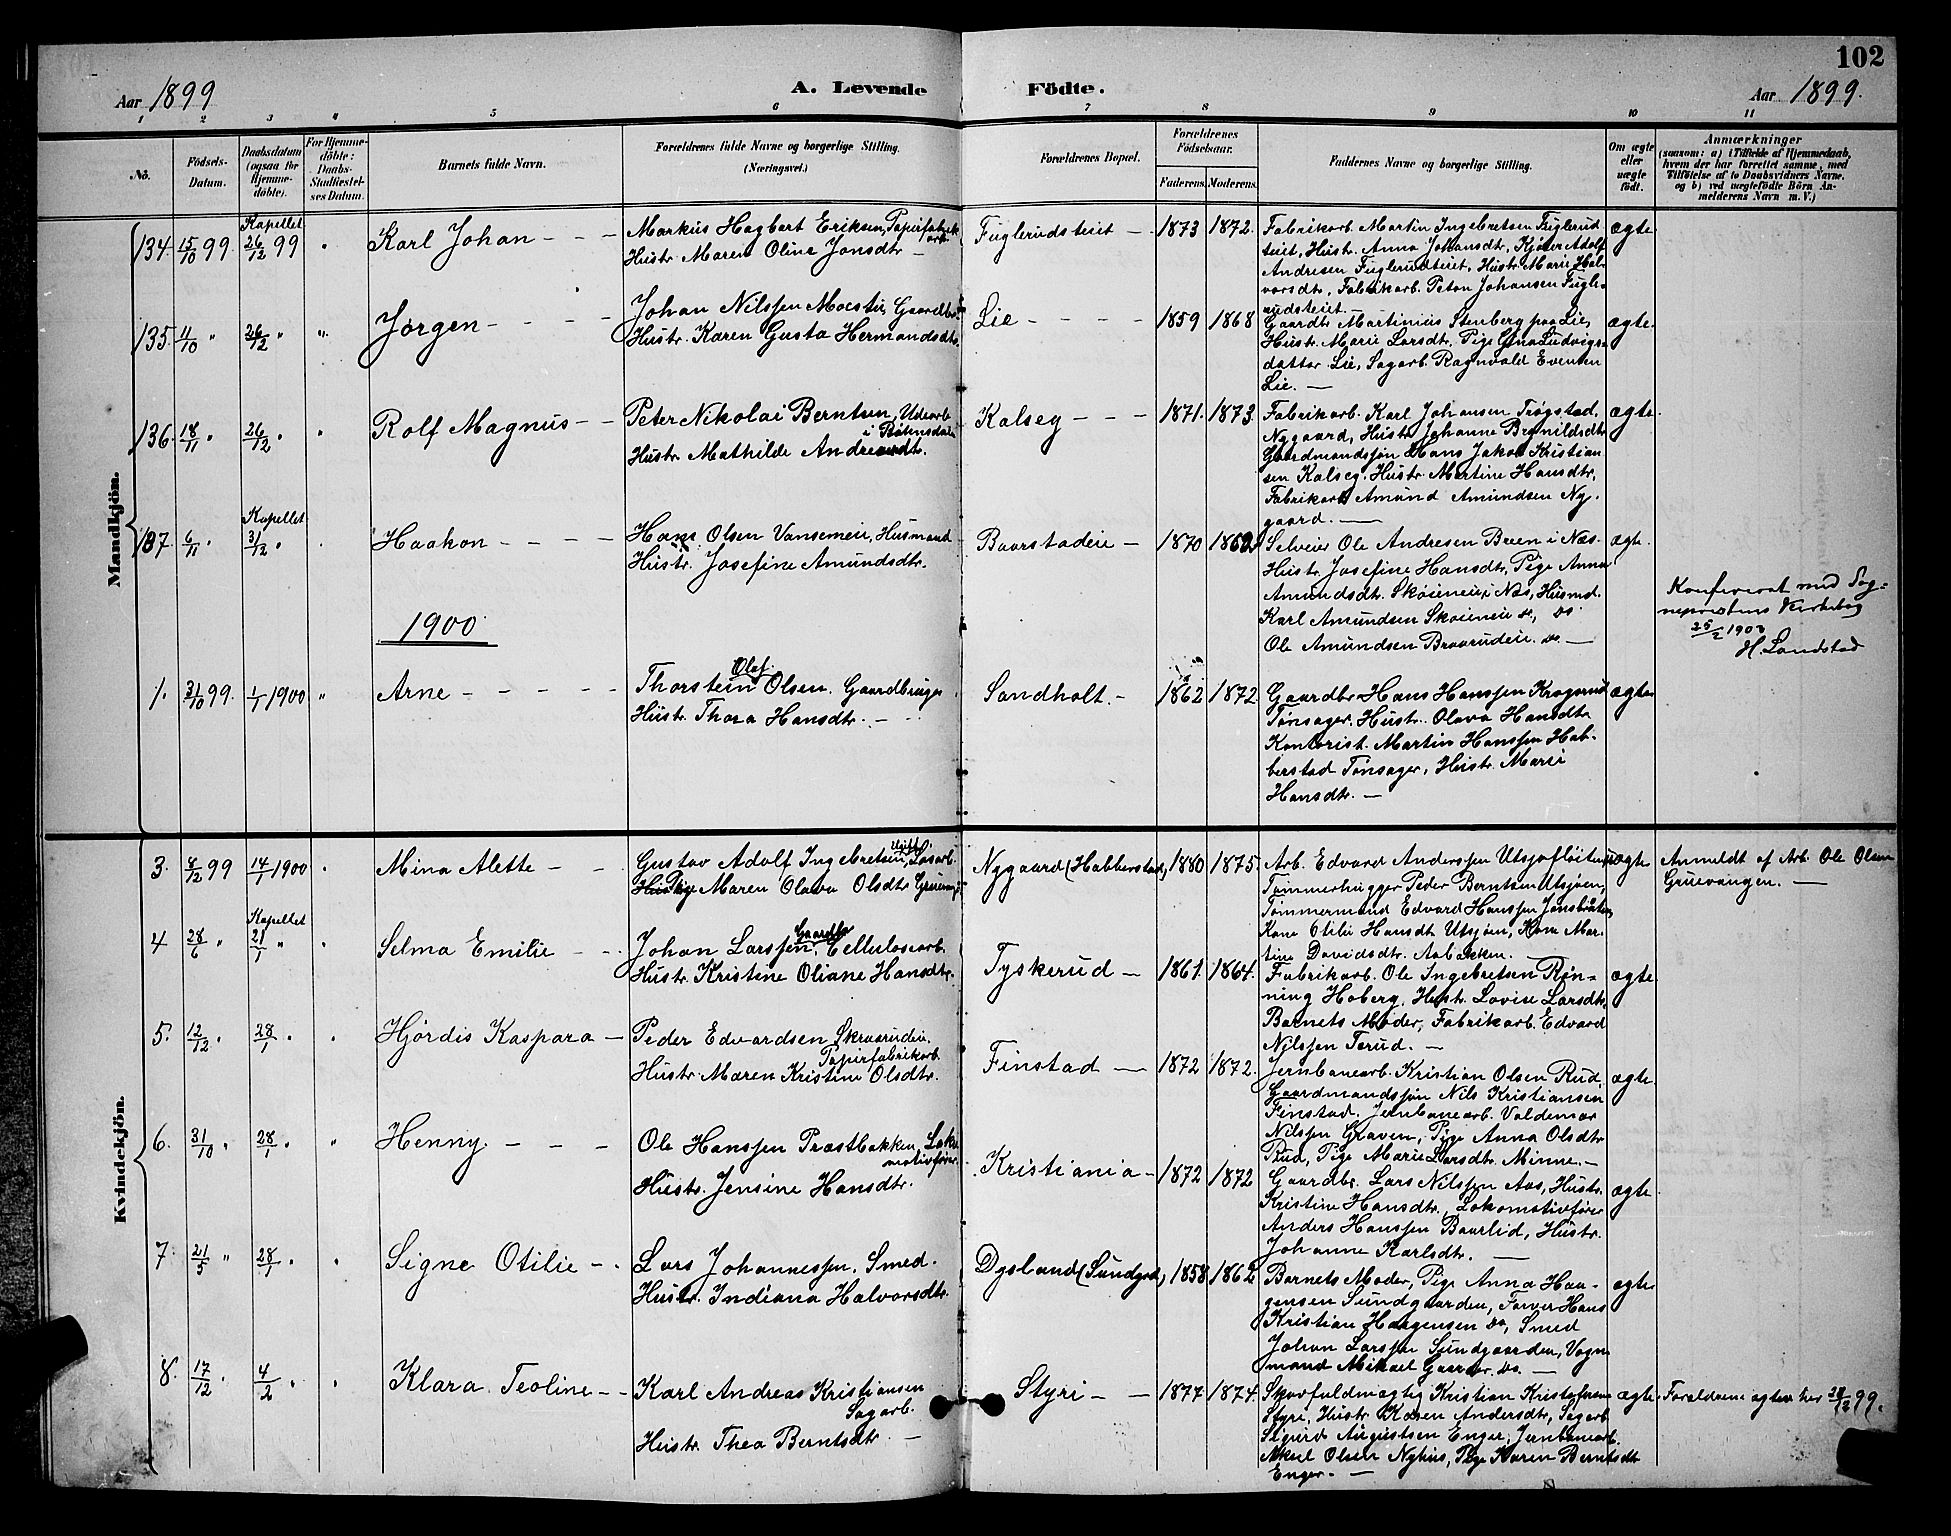 102
Aar 1899
A. Levende Födte.
Aar 1899.
1 2 3 4 5 6 7 8 9 10 11
No.
Födsels-Datum.
Daabsdatum (ogsaa for Hjemmedöbte).
For Hjemmedöbte: Daabs-Stadfæstelses Datum.
Barnets fulde Navn.
Forældrenes fulde Navne og borgerlige Stilling.
(Næringsvei.)
Forældrenes Bopæl.
Forældrenes Födselsaar.
Faderens. Moderens.
Faddernes Navne og borgerlige Stilling.
Om ægte eller uægte födt.
Anmærkninger
(saasom: a) i Tilfælde af Hjemmedaab,
hvem der har forrettet samme, med
Tilföielse af to Daabsvidners Navne,
og b) ved uægtefödte Börn An-
melderens Navn m. V.)
Mandkjön.
134. 15/10 99. Kapellet 26/12 99 " Karl Johan - - -
Markus Hagbart Eriksen, Papirfabrikarb.
Hustr. Maren Oline Jonsdtr. -
Fuglerudsteiet - 1873 1872.
Fabrikarb. Martin Ingebretsen Fuglerud
teiet, Hustr. Anna Johansdtr, Kjører Adolf
Andresen Fuglerudteiet, Hustr. Marie Hal-
vorsdtr, Fabrikarb. Peton Johansen Fugle-
rudsteiet.
ægte
135. 11/10 " 26/12 " " Jørgen - - - -
Johan Nilssen Moestu, Gaardbr.
Hustr. Karen Gusta Hermandsdtr.
Lie - - - - 1859 1868
Gaardbr. Martinius Stenberg paa Lie,
Hustr. Marie Larsdtr, Pige Gina Ludvigs-
datter Lie, Sagarb. Ragnvald Evensen
Lie. -
ægte.
136. 18/11 " 26/12 " " Rolf Magnus - -
Peter Nikolai Berntsen, Udearb.
i Bøhnsdalen
Hustr. Mathilde Andreasdtr.
Kalseg - - - 1871. 1873.
Fabrikarb. Karl Johansen Trøgstad,
Nygaard, Hustr. Johanne Brynildsdtr.
Gaardmandssøn Hans Jakob Kristian
sen Kalseg, Hustr. Martine Hansdtr,
Fabrikarb. Amund Amundsen Ny-
gaard. -
ægte.
137. 6/11 " Kapellet 31/12 " Haakon - - - -
Hans Olsen Vansemeie, Husmand
Hustr. Josefine Amundsdtr.
Baarstadeie - 1870
Selveier Ole Andresen Breen i Næs.
Hustr. Josefine Hansdtr, Pige Anna
Amundsdtr. Skøieneie i Næs, Husmd.
Karl Amundsen Skøieneie do, do
Ole Amundsen Braarudeie. do. -
ægte.
Konfereret med Sog-
neprestens Kirkebog
25/2 1903
H. Landstad
1900
1. 31/10 99. 1/1 1900 " Arne - - - - -
Thorstein Olaf Olsen. Gaardbruger
Hustr. Thora Hansdtr. -
Sandholt. - 1862 1872
Gaardbr. Hans Hanssen Krogsrud
Tønsager, Hustr. Olava Hansdtr.
Kontorist. Martin Hanssen Hab-
berstad Tønsager, Hustr. Marie
Hansdtr. -
ægte
Kvindekjön.
3. 8/12 99 14/1 1900 " Mina Alette - -
Gustav Adolf Ingebretsen, Ugift
Pige Maren Olava Olsdtr.
Nygaard (Habberstad) 1880 1875.
Arb. Edvard Anderssen
Tømmerhugger Peder Berntsen Utsjøen,
Tømmermand Edvard Hanssen Jønsbråten,
Kone Otilie Hansdtr. Utsjøen, Kone Mar-
tine Davidsdtr. Aabakken. -
Anmeldt af Arb. Ole Olsen
Gruevangen. -
4 28/6 " Kapellet 21/1 " " Selma Emilie - -
Johan Larssen, Gaardbr. Cellulosearb.
Hustr. Kristine Oliane Hansdtr.
Tyskerud - 1861. 1864.
Fabrikarb. Ole Ingebretsen Røn-
ning Hoberg, Hustr. Lovise Larsdtr,
Barnets Moder, Fabrikarb. Edvard
Nilssen Terud. -
ægte
5. 12/12 " 28/1 " " Hjørdis Kaspara -
Peder Edvardsen Skraarudeie,
Papirfabrikarb.
Hustr. Maren Kristine Olsdtr.
Finstad - 1872 1872.
Jernbanearb. Kristian Olsen Rud,
Gaardmandssøn Nils Kristiansen
Finstad, Jernbanearb. Valdemar
Nilssen Graven, Pige Anna Olsdtr
Rud, Pige Marie Larsdtr. Minne. -
ægte.
6. 31/10 " 28/1 " " Henny. - - -
Ole Hanssen Præstbakken, Loko-
motivfører.
Hustr. Jensine Hansdtr.
Kristiania - 1872 1872
Gaardbr. Lars Nilssen Aas, Hustr.
Kristine Hansdtr, Lokomotivfører
Anders Hanssen Baarlid, Hustr.
Johanne Karlsdtr. -
ægte.
7. 21/5 " 28/1 " " Signe Otilie - -
Lars Johannessen, Smed.
Hustr. Indiana Halvorsdtr.
Dysland (Sundgrd.) 1858 1862
Barnets Moder, Pige Anna Haa-
gensen Sundgaarden, Farver Hans
Kristian Haagensen do, Smed
Johan Larssen Sundgaarden, Vogn
mand Mikael Gaarder do. -
ægte
8. 17/12 " 4/2 " " Klara Teoline - -
Karl Andreas Kristiansen
Sagarb.
Hustr. Thea Berntsdtr. -
Styri - - 1877 1874.
Skovfuldmægtig Kristian Kristofersen
Styri, Hustr. Karen Andersdtr, Sagarb.
Sigurd Augustsen Enger, Jernbanearb.
Aksel Olsen Nyhus, Pige Karen Berntsdtr
Enger. -
ægte.
Forældrene